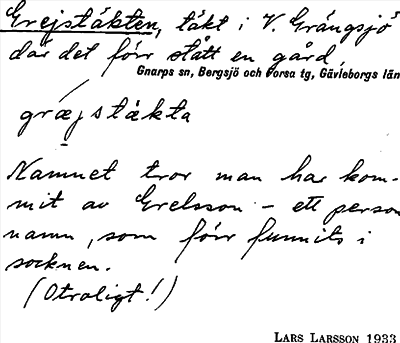 Grejstäkten, täkt i V. Grängsjö
där det förr stått en gård,
Gnarps sn, Bergsjö och Forsa tg, Gävleborgs län
græjstäkta
Namnet tror man har kom-
mit av Grelsson – ett person
namn, som förr funnits i
socknen.
(Otroligt!)
LARS LARSSON 1933